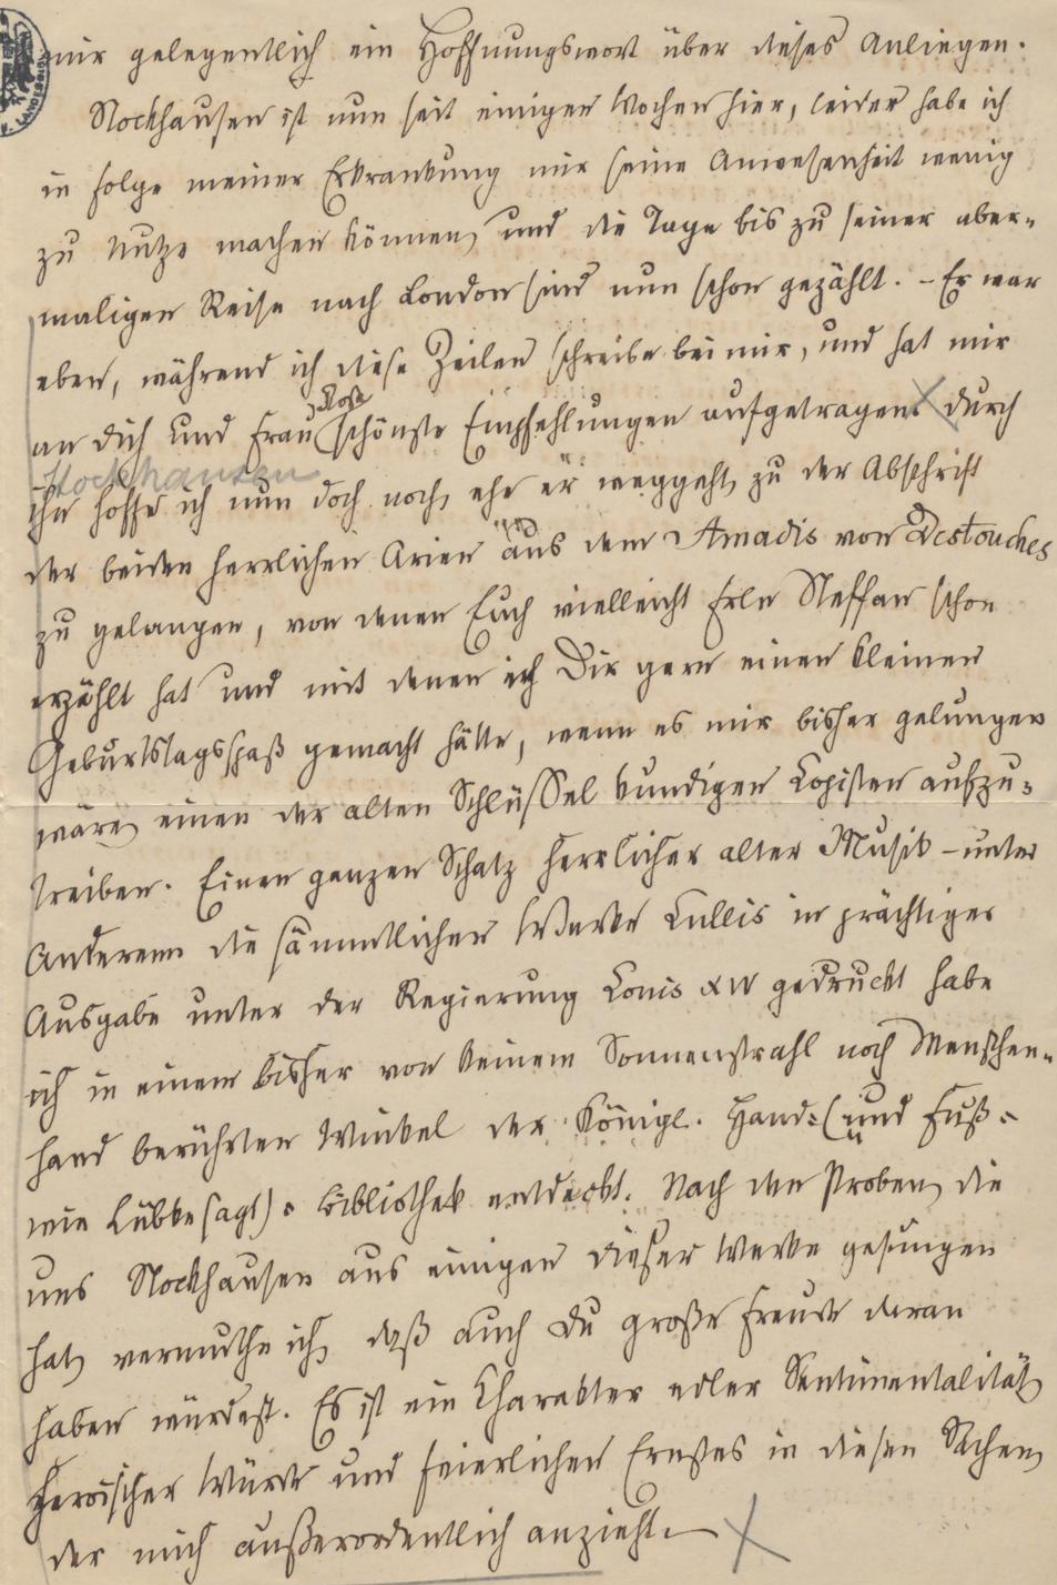 mir gelegentlich ein Hoffnungswort über dieses Anliegen.
Stockhausen ist nun seit einigen Wochen hier, leider habe ich
in Folge meiner Erkrankung mir seine Anwesenheit wenig
zu Nutze machen können, und die Tage bis zu seiner aber-
maligen Reise nach London sind nun schon gezählt. – Er war
eben, während ich diese Zeilen schreibe bei mir, und hat mir
an Dich und Frau schönste Empfehlungen aufgetragen. Durch
Stockhausen
ihn hoffe ich nun doch noch, ehe er weggeht, zu der Abschrift
der beiden herrlichen Arien aus dem Amadis von Destouches
zu gelangen, von denen Euch vielleicht Frln Steffan schon
erzählt hat und mit denen ich Dir gern einen kleinen
Geburtstagsspaß gemacht hätte, wenn es mir bisher gelungen
wäre, einen der alten Schlüssel kundigen Copisten aufzu-
treiben. Einen ganzen Schatz herrlicher alter Musik – unter
Anderem die sämmtlichen Werke Lullis in prächtiger
Ausgabe unter der Regierung Louis XIV gedruckt habe
ich in einem bisher von keinem Sonnenstrahl noch Menschen-
hand berührten Winkel der Königl. Hand- (und Fuß-
wie Lübke sagt) - bibliothek entdeckt. Nach den Proben, die
uns Stockhausen aus einigen dieser Werke gesungen
hat, vermuthe ich, daß auch Du große Freude daran
haben würdest. Es ist ein Charakter edler Sentimentalität,
heroischer Würde und feierlichen Ernstes in diesen Sachen,
der mich außerordentlich anzieht. –